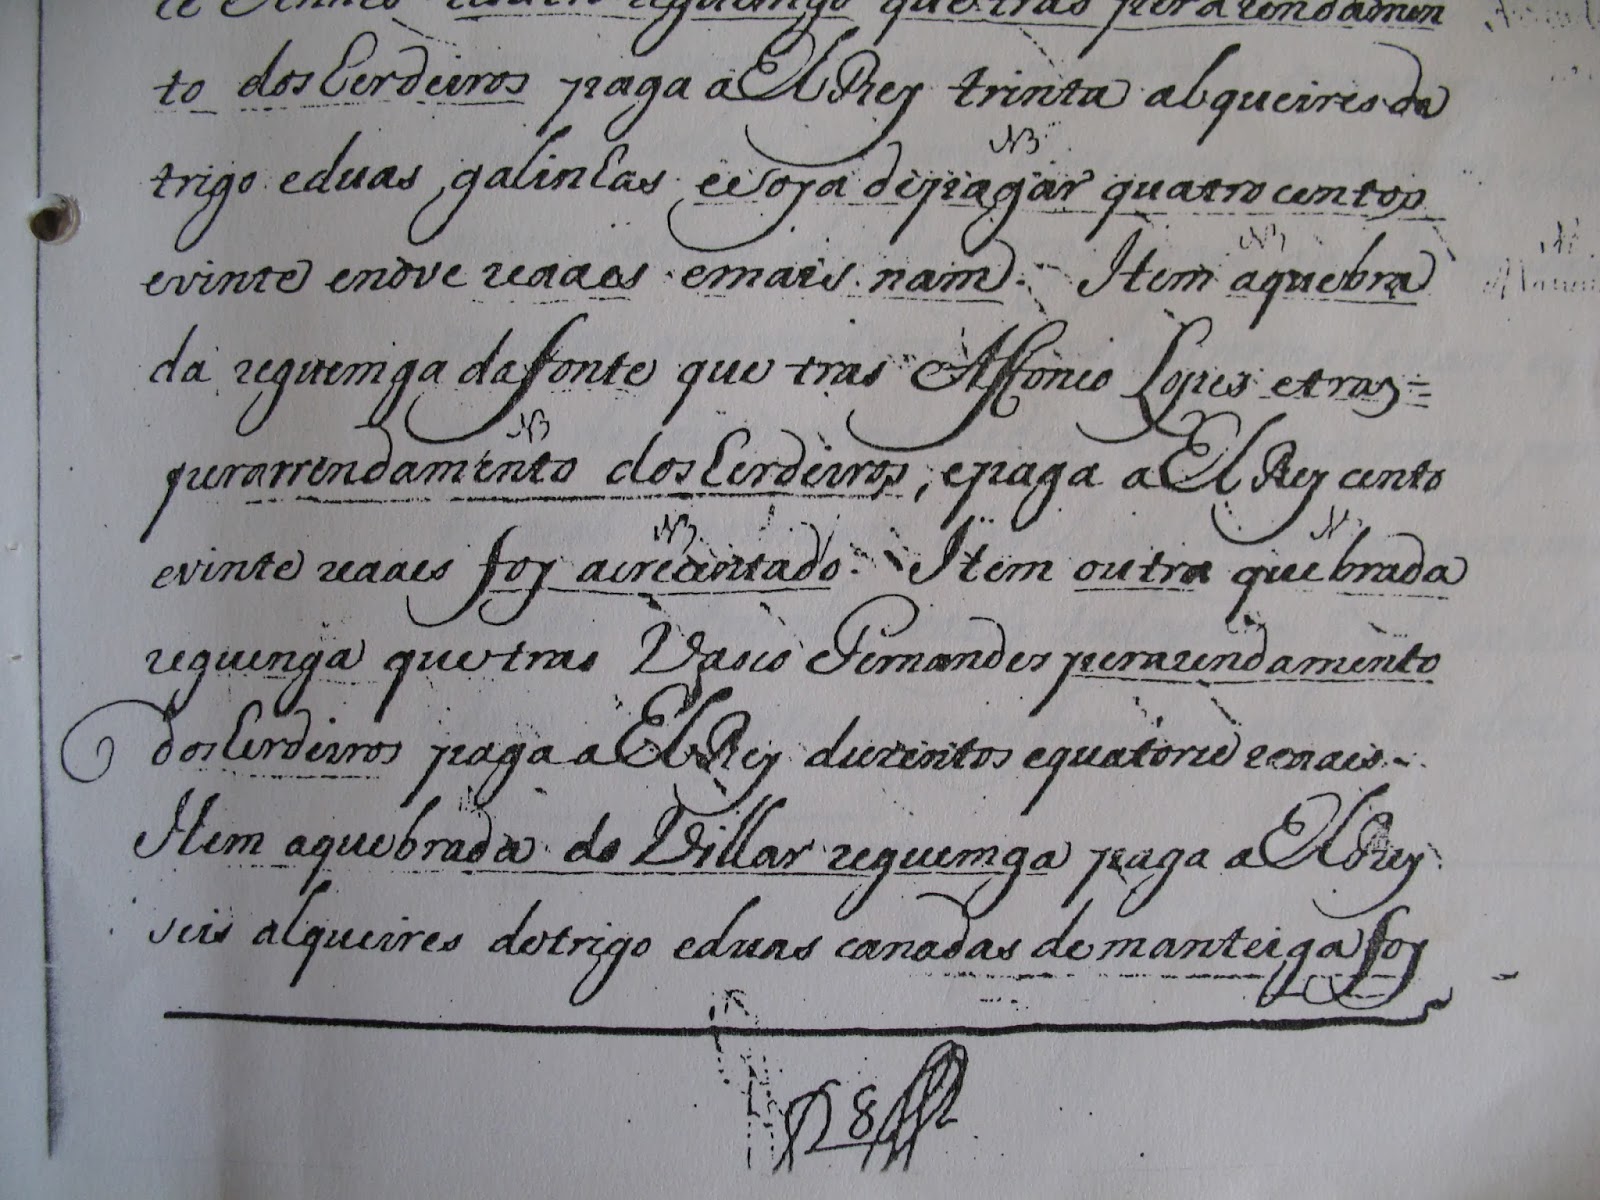 outro reguemgo que tras per arendamen
to dos Erdeiros paga a El Rey trinta alqueires da
trigo e duas galinhas e soya de pagar quatro centos
e vinte e nove reaaes e mais nam. Item a quebra
da reguemga da fonte que tras Affonço Lopes e tras =
per arrendamento dos Erdeiros, e paga a El Rey cento
e vinte reaaes foy acrecentado. Item outra quebrada
reguenga que tras Vasco Fernandes per arendamento
dos Erdeiros paga a El Rey duzentos e quatorze reaaes
Item a quebrada do Villar reguemga paga a El Rey
seis alqueires de trigo e duas canadas de manteiga foy